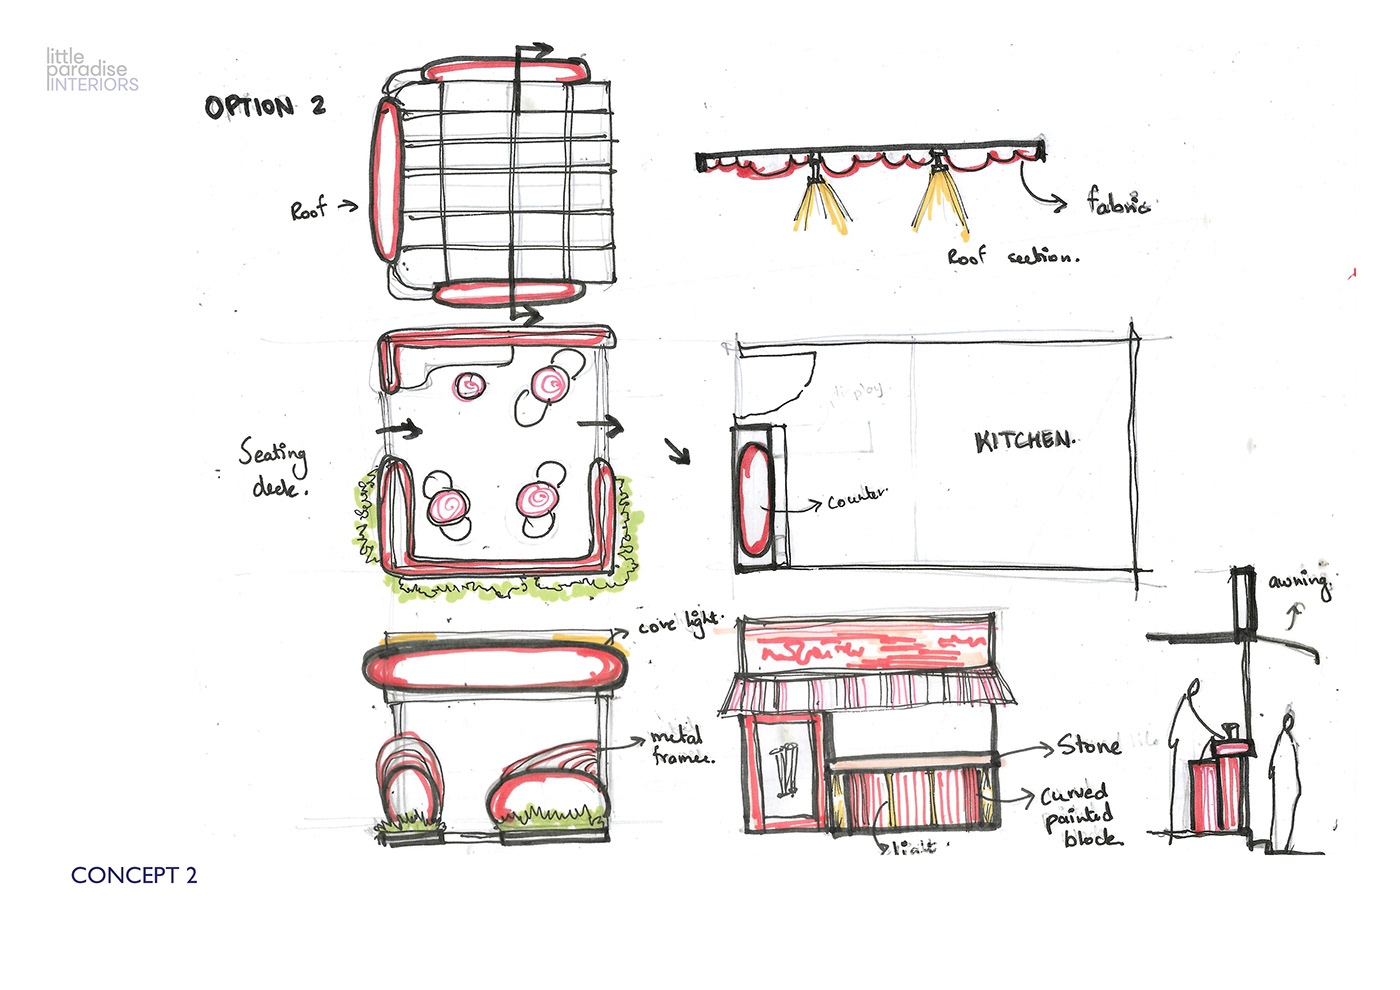 little
paradise
INTERIORS
OPTION 2
Roof
fabric
Roof section.
Seating
deck.
display
KITCHEN.
counter.
awning.
cove light.
metal
frame.
Stone
curved
painted
block.
light
CONCEPT 2